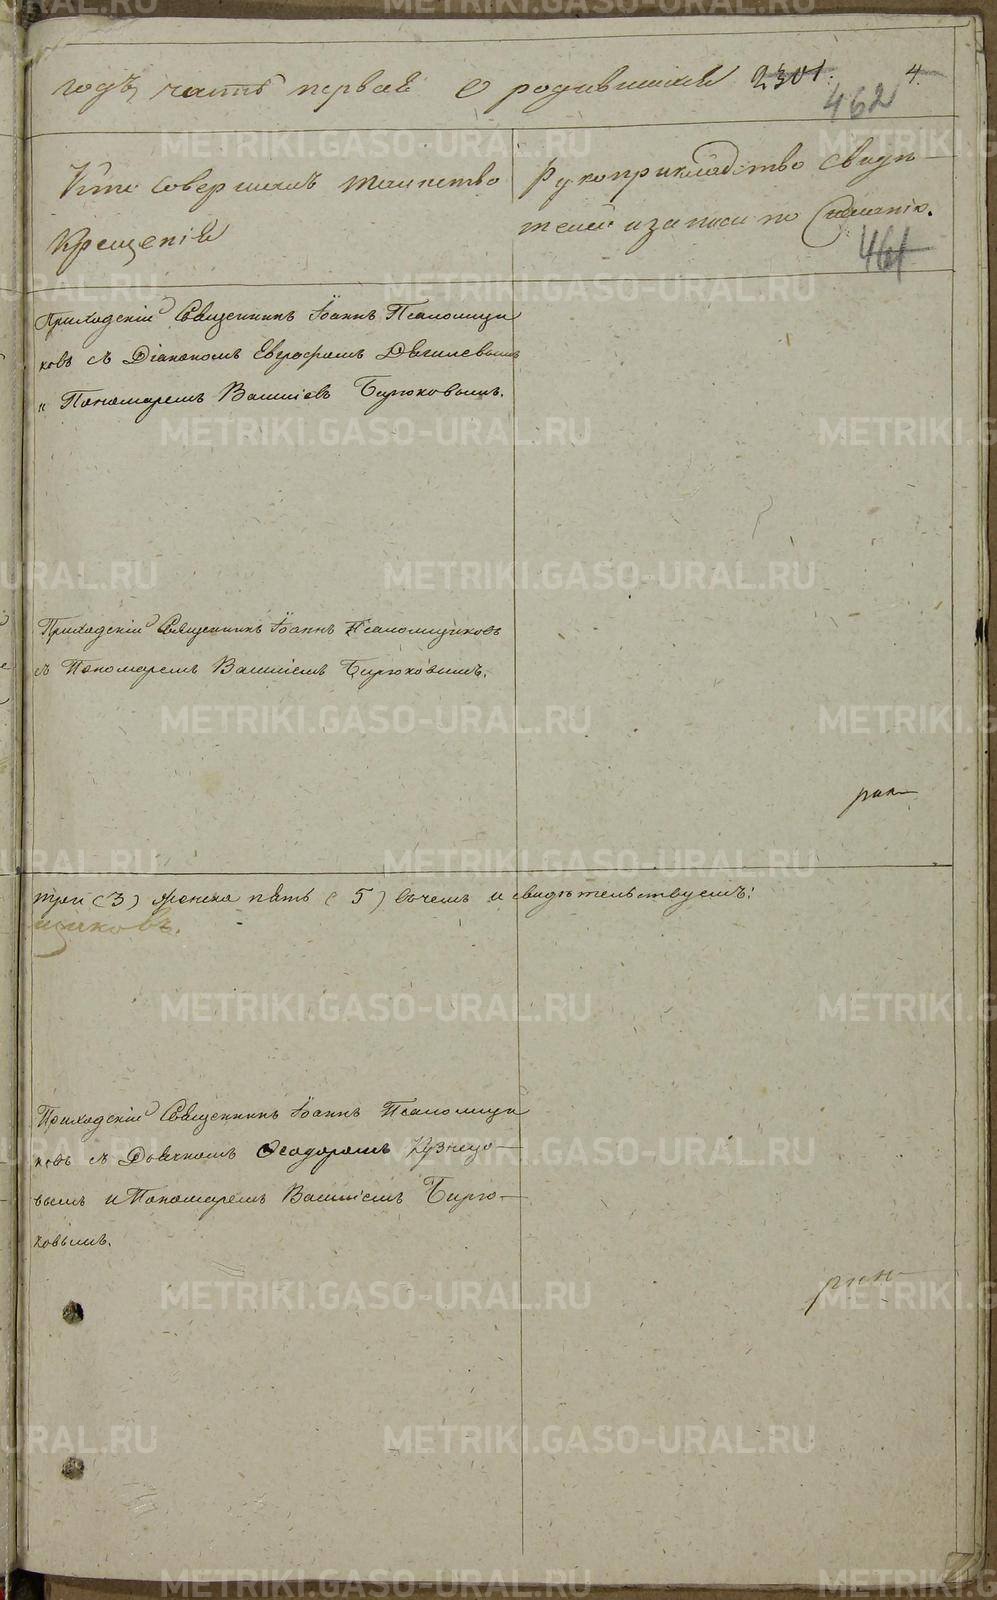 годъ, часть первая о родившихся 2301. 4.
462
Кто совершилъ таинство
Крещенія
Рукоприкладство свидѣ-
телей записи по желанію.
461
Приходскій Священникъ Іоаннъ Псаломщи
ковъ съ Діакономъ Евграфомъ Двинлевымъ
и Пономаремъ Василіемъ Бирюковымъ.
Приходскій Священникъ Іоаннъ Псаломщиковъ
съ Пономаремъ Василіемъ Бирюковымъ.
три (3) женска пять (5) въ чемъ и свидѣтельствуемъ:
щиковъ.
Приходскій Священникъ Іоаннъ Псаломщи
ковъ съ Дьячкомъ Ѳеодоромъ Кузнецо-
вымъ и Пономаремъ Василіемъ Бирю-
ковымъ.
METRIKI.GASO-URAL.RU